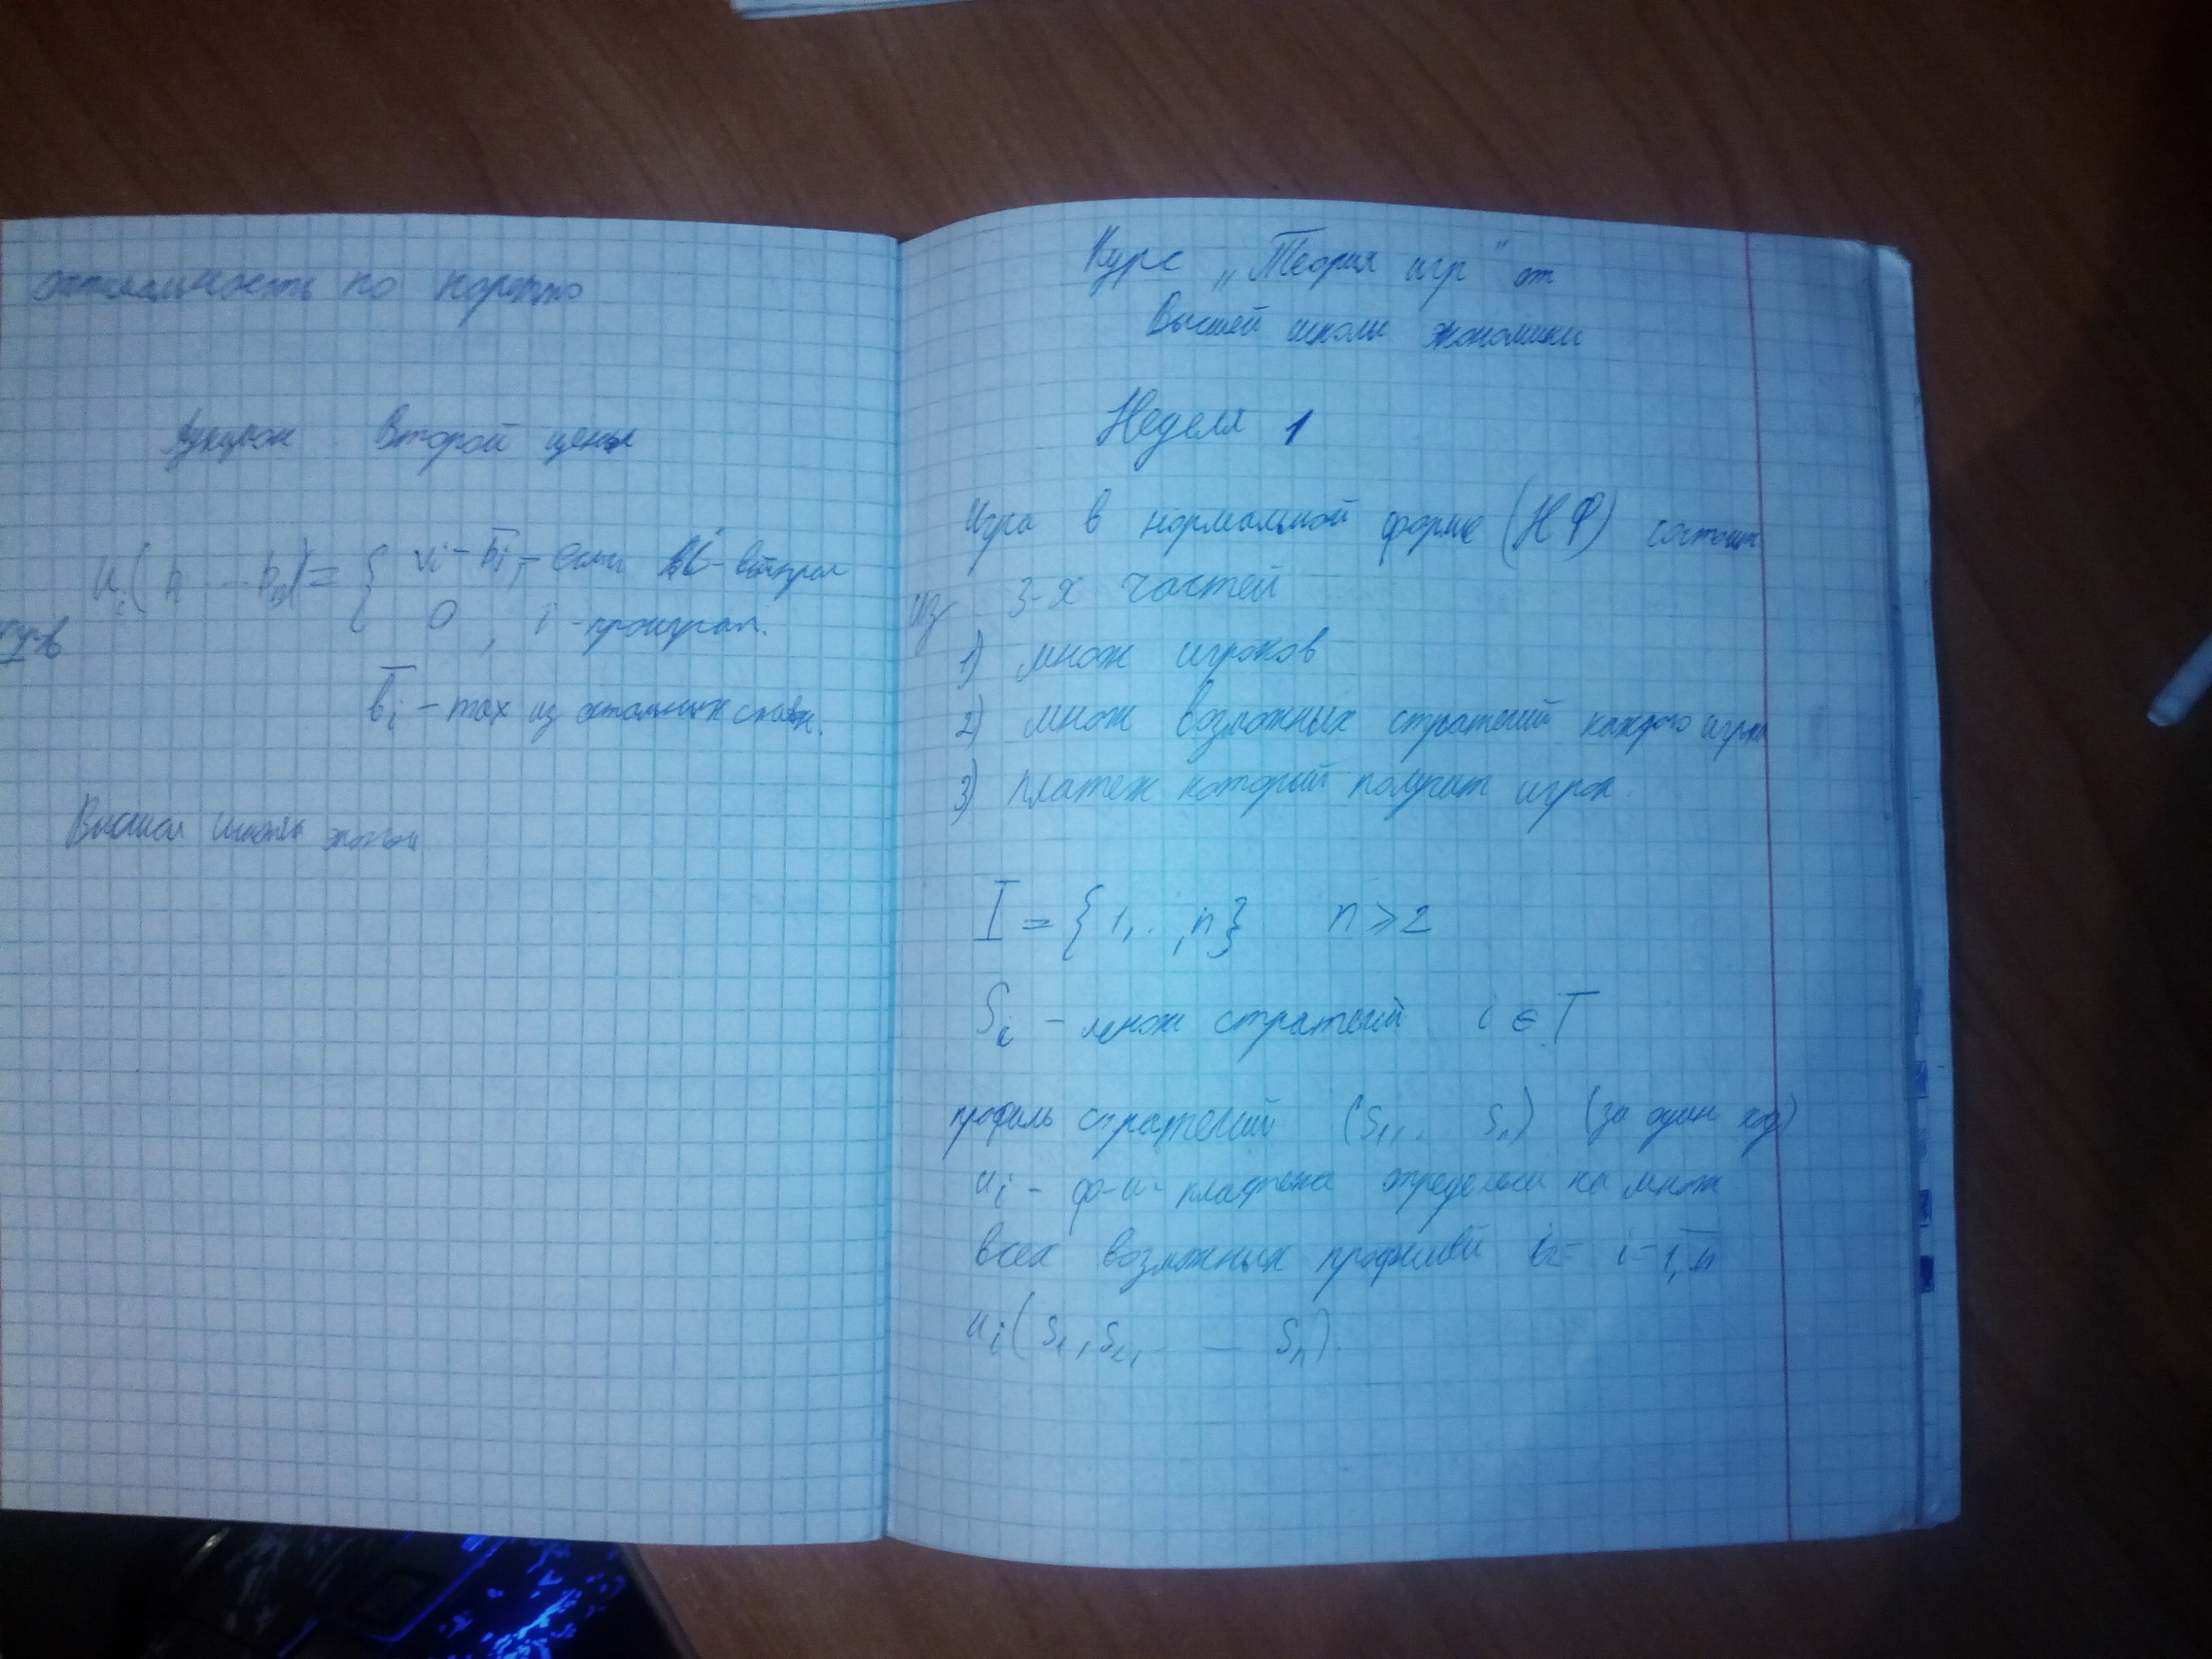 оптимальность по парето
Аукцион Второй цены
u_i(b ... b_n) = { v_i - b̄_i, - если i - выиграл
0 , i - проиграл.
b̄_i - max из остальных ставок.
Высшая школы эконом
Курс „Теория игр" от
Высшей школы экономики
Неделя 1
Игра в нормальной форме (НФ) состоит
из 3-х частей
1) множ игроков
2) множ возможных стратегий каждого игрока
3) платеж который получит игрок.
I = {1, .. , n} n ⩾ 2
S_i - множ стратегий i ∈ I
профиль стратегий (s_1, , . s_n) (за один ход)
u_i - ф-и- платежа определен на множ
всех возможных профилей i = 1, n
u_i(s_1, s_2, — s_n).